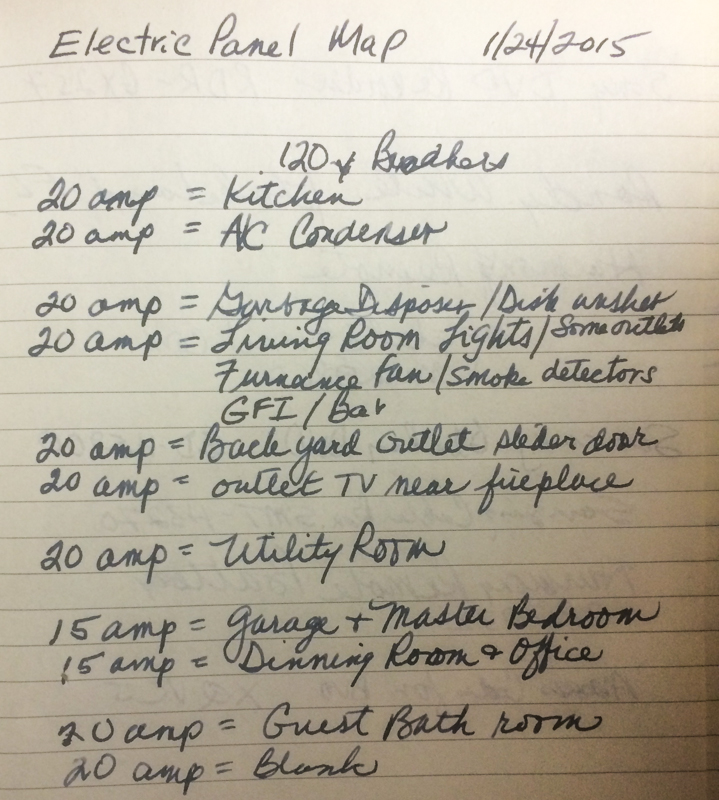 Electric Panel Map 1/24/2015
120 v Breakers
20 amp = Kitchen
20 amp = A/C Condenser
20 amp = Garbage Disposer / Dish washer
20 amp = Living Room Lights / Some outlets
Furnance Fan / Smoke detectors
GFI / Bar
20 amp = Back yard outlet slider door
20 amp = outlet TV near fireplace
20 amp = Utility Room
15 amp = Garage + Master Bedroom
15 amp = Dinning Room & Office
20 amp = Guest Bath room
20 amp = Blank